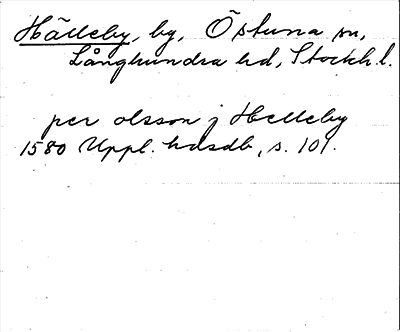 Hälleby, by, Östuna sn,
Långhundra hd, Stockh. l.
per olsson j Helleby
1580 Uppl. hdsdb, s. 101.